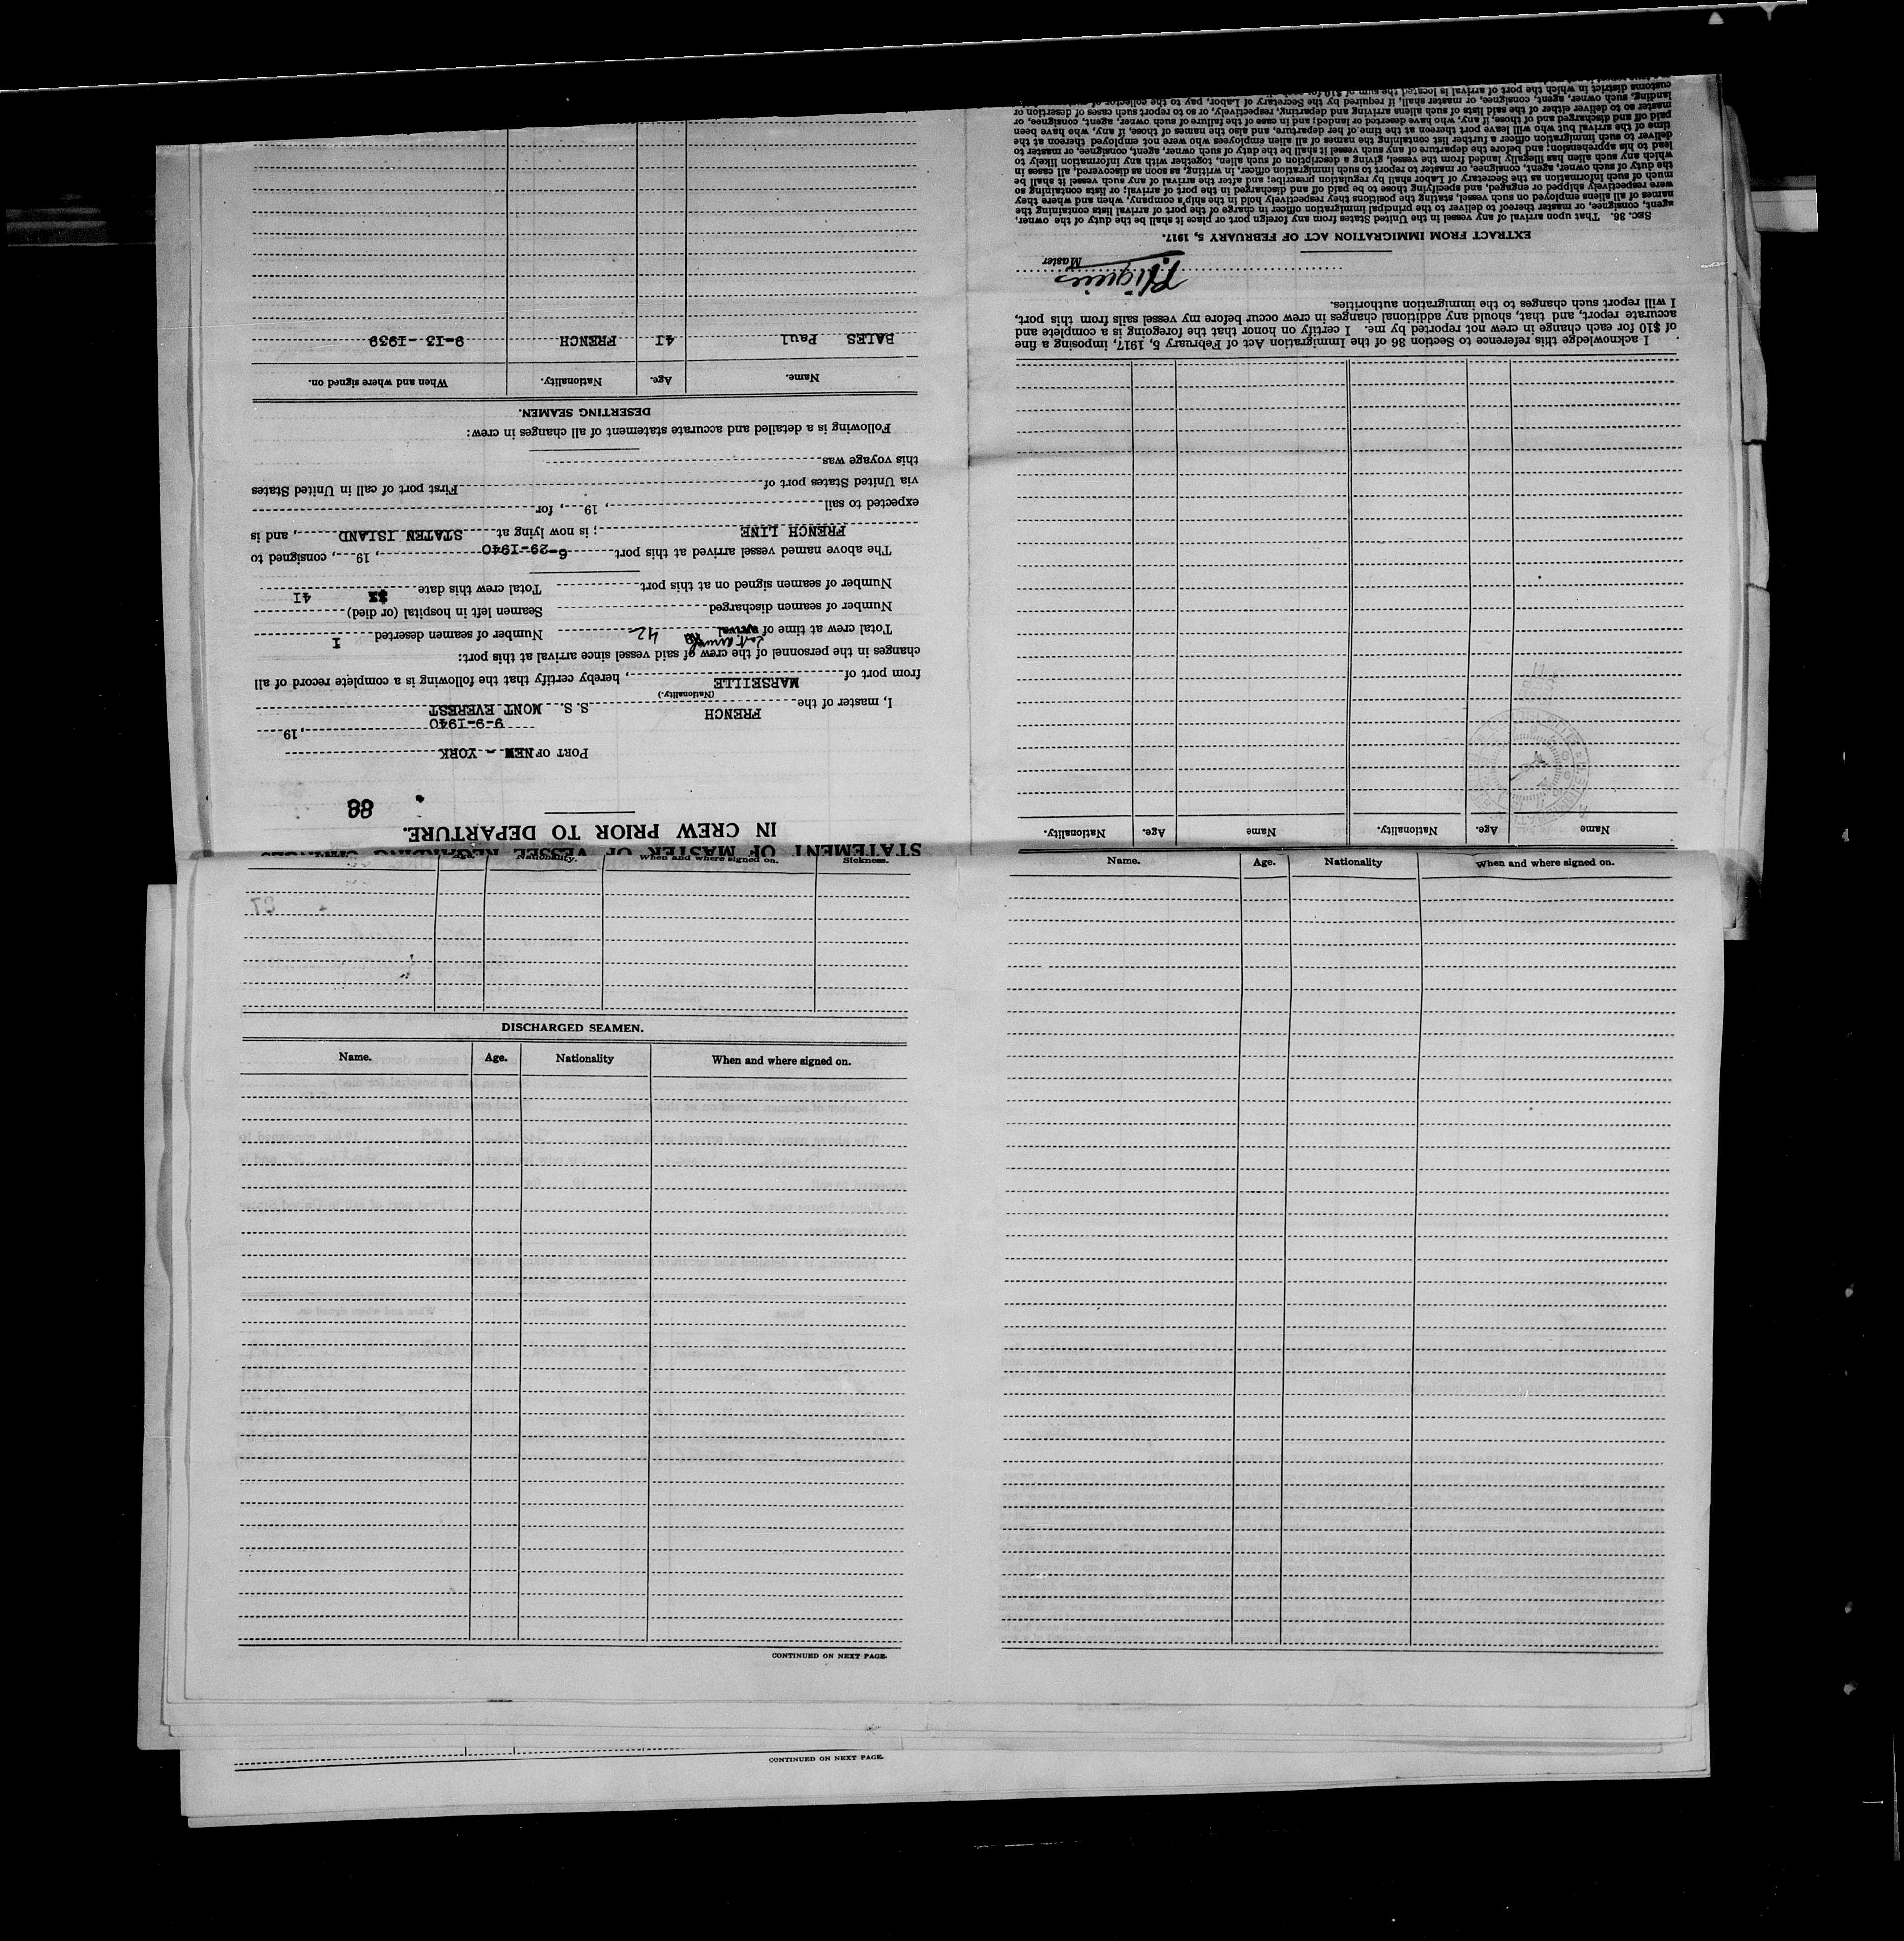 STATEMENT OF MASTER OF VESSEL REGARDING CHANGES
IN CREW PRIOR TO DEPARTURE.
88
PORT OF NEW - YORK
9-9-1940, 19
I, master of the FRENCH S. S. MONT EVEREST
(Nationality.)
from port of MARSEILLE, hereby certify that the following is a complete record of all
changes in the personnel of the crew of said vessel since arrival at this port:
Total crew at time of arrival 42 Number of seamen deserted I
Number of seamen discharged Seamen left in hospital (or died)
Number of seamen signed on at this port Total crew this date 4I
The above named vessel arrived at this port 6-29-1940, 19, consigned to
FRENCH LINE; is now lying at STATEN ISLAND, and is
expected to sail, 19, for
via United States port of First port of call in United States
this voyage was
Following is a detailed and accurate statement of all changes in crew:
DESERTING SEAMEN.
Name. Age. Nationality. When and where signed on.
BALES Paul 4I FRENCH 9-I3-I939
Name Age. Nationality. Name Age. Nationality.
I acknowledge this reference to Section 36 of the Immigration Act of February 5, 1917, imposing a fine
of $10 for each change in crew not reported by me. I certify on honor that the foregoing is a complete and
accurate report, and that, should any additional changes in crew occur before my vessel sails from this port,
I will report such changes to the immigration authorities.
Master
EXTRACT FROM IMMIGRATION ACT OF FEBRUARY 5, 1917.
Sec. 36. That upon arrival of any vessel in the United States from any foreign port or place it shall be the duty of the owner,
agent, consignee, or master thereof to deliver to the principal immigration officer in charge of the port of arrival lists containing the
names of all aliens employed on such vessel, stating the positions they respectively hold in the ship's company, when and where they
were respectively shipped or engaged, and specifying those to be paid off and discharged in the port of arrival; or lists containing so
much of such information as the Secretary of Labor shall by regulation prescribe; and after the arrival of any such vessel it shall be
the duty of such owner, agent, consignee, or master to report to such immigration officer, in writing, as soon as discovered, all cases in
which any such alien has illegally landed from the vessel, giving a description of such alien, together with any information likely to
lead to his apprehension; and before the departure of any such vessel it shall be the duty of such owner, agent, consignee, or master to
deliver to such immigration officer a further list containing the names of all alien employees who were not employed thereon at the
time of the arrival but who will leave port thereon at the time of her departure, and also the names of those, if any, who have been
paid off and discharged and of those, if any, who have deserted or landed; and in case of the failure of such owner, agent, consignee, or
master so to deliver either of the said lists of such aliens arriving and departing, respectively, or so to report such cases of desertion or
landing, such owner, agent, consignee, or master shall, if required by the Secretary of Labor, pay to the collector of
customs district in which the port of arrival is located the sum of $10 for
Nationality. When and where signed on. Sickness.
DISCHARGED SEAMEN.
Name. Age. Nationality When and where signed on.
CONTINUED ON NEXT PAGE.
Name. Age. Nationality When and where signed on.
CONTINUED ON NEXT PAGE.